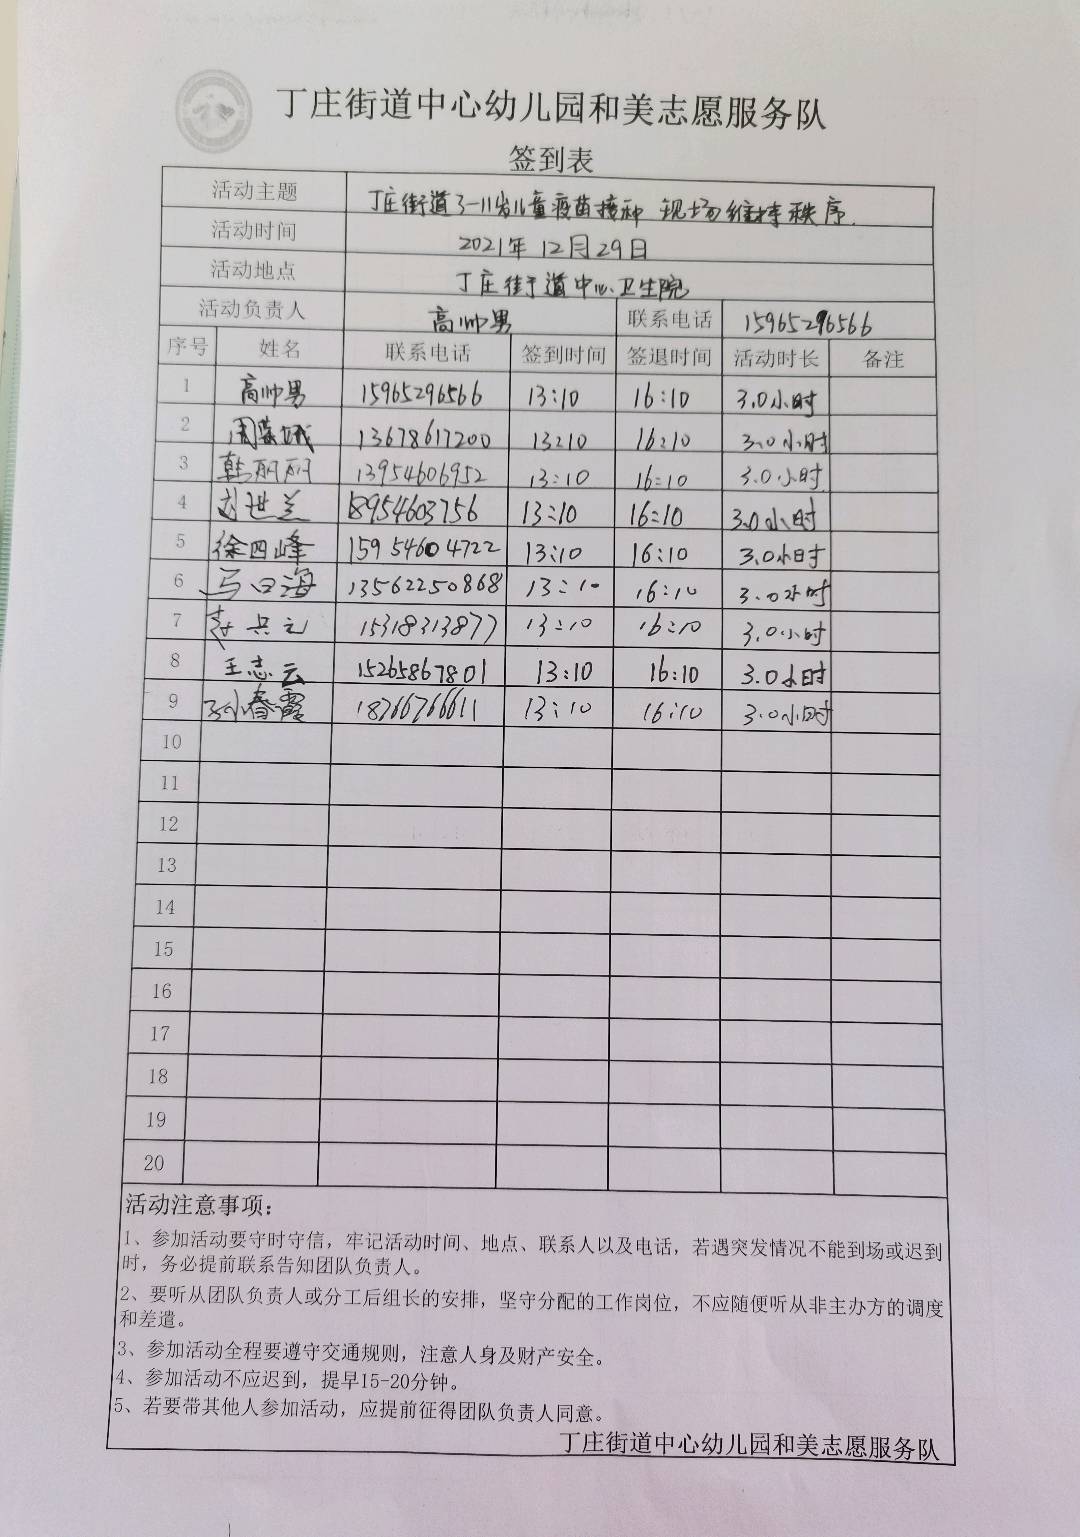 丁庄街道中心幼儿园和美志愿服务队
签到表
活动主题 丁庄街道3-11岁儿童疫苗接种 现场维持秩序.
活动时间 2021年12月29日
活动地点 丁庄街道中心卫生院
活动负责人 高帅男 联系电话 15965296566
序号 姓名 联系电话 签到时间 签退时间 活动时长 备注
1 高帅男 15965296566 13:10 16:10 3.0小时
2 13678617200 13:10 16:10 3.0小时
3 韩丽丽 13954606952 13:10 16:10 3.0小时
4 刘世兰 18954603756 13:10 16:10 3.0小时
5 徐四峰 15954604722 13:10 16:10 3.0小时
6 13562250868 13:10 16:10 3.0小时
7 15318313877 13:10 16:10 3.0小时
8 王志云 15265867801 13:10 16:10 3.0小时
9 孙春霞 18766766611 13:10 16:10 3.0小时
10
11
12
13
14
15
16
17
18
19
20
活动注意事项：
1、参加活动要守时守信，牢记活动时间、地点、联系人以及电话，若遇突发情况不能到场或迟到
时，务必提前联系告知团队负责人。
2、要听从团队负责人或分工后组长的安排，坚守分配的工作岗位，不应随便听从非主办方的调度
和差遣。
3、参加活动全程要遵守交通规则，注意人身及财产安全。
4、参加活动不应迟到，提早15-20分钟。
5、若要带其他人参加活动，应提前征得团队负责人同意。
丁庄街道中心幼儿园和美志愿服务队